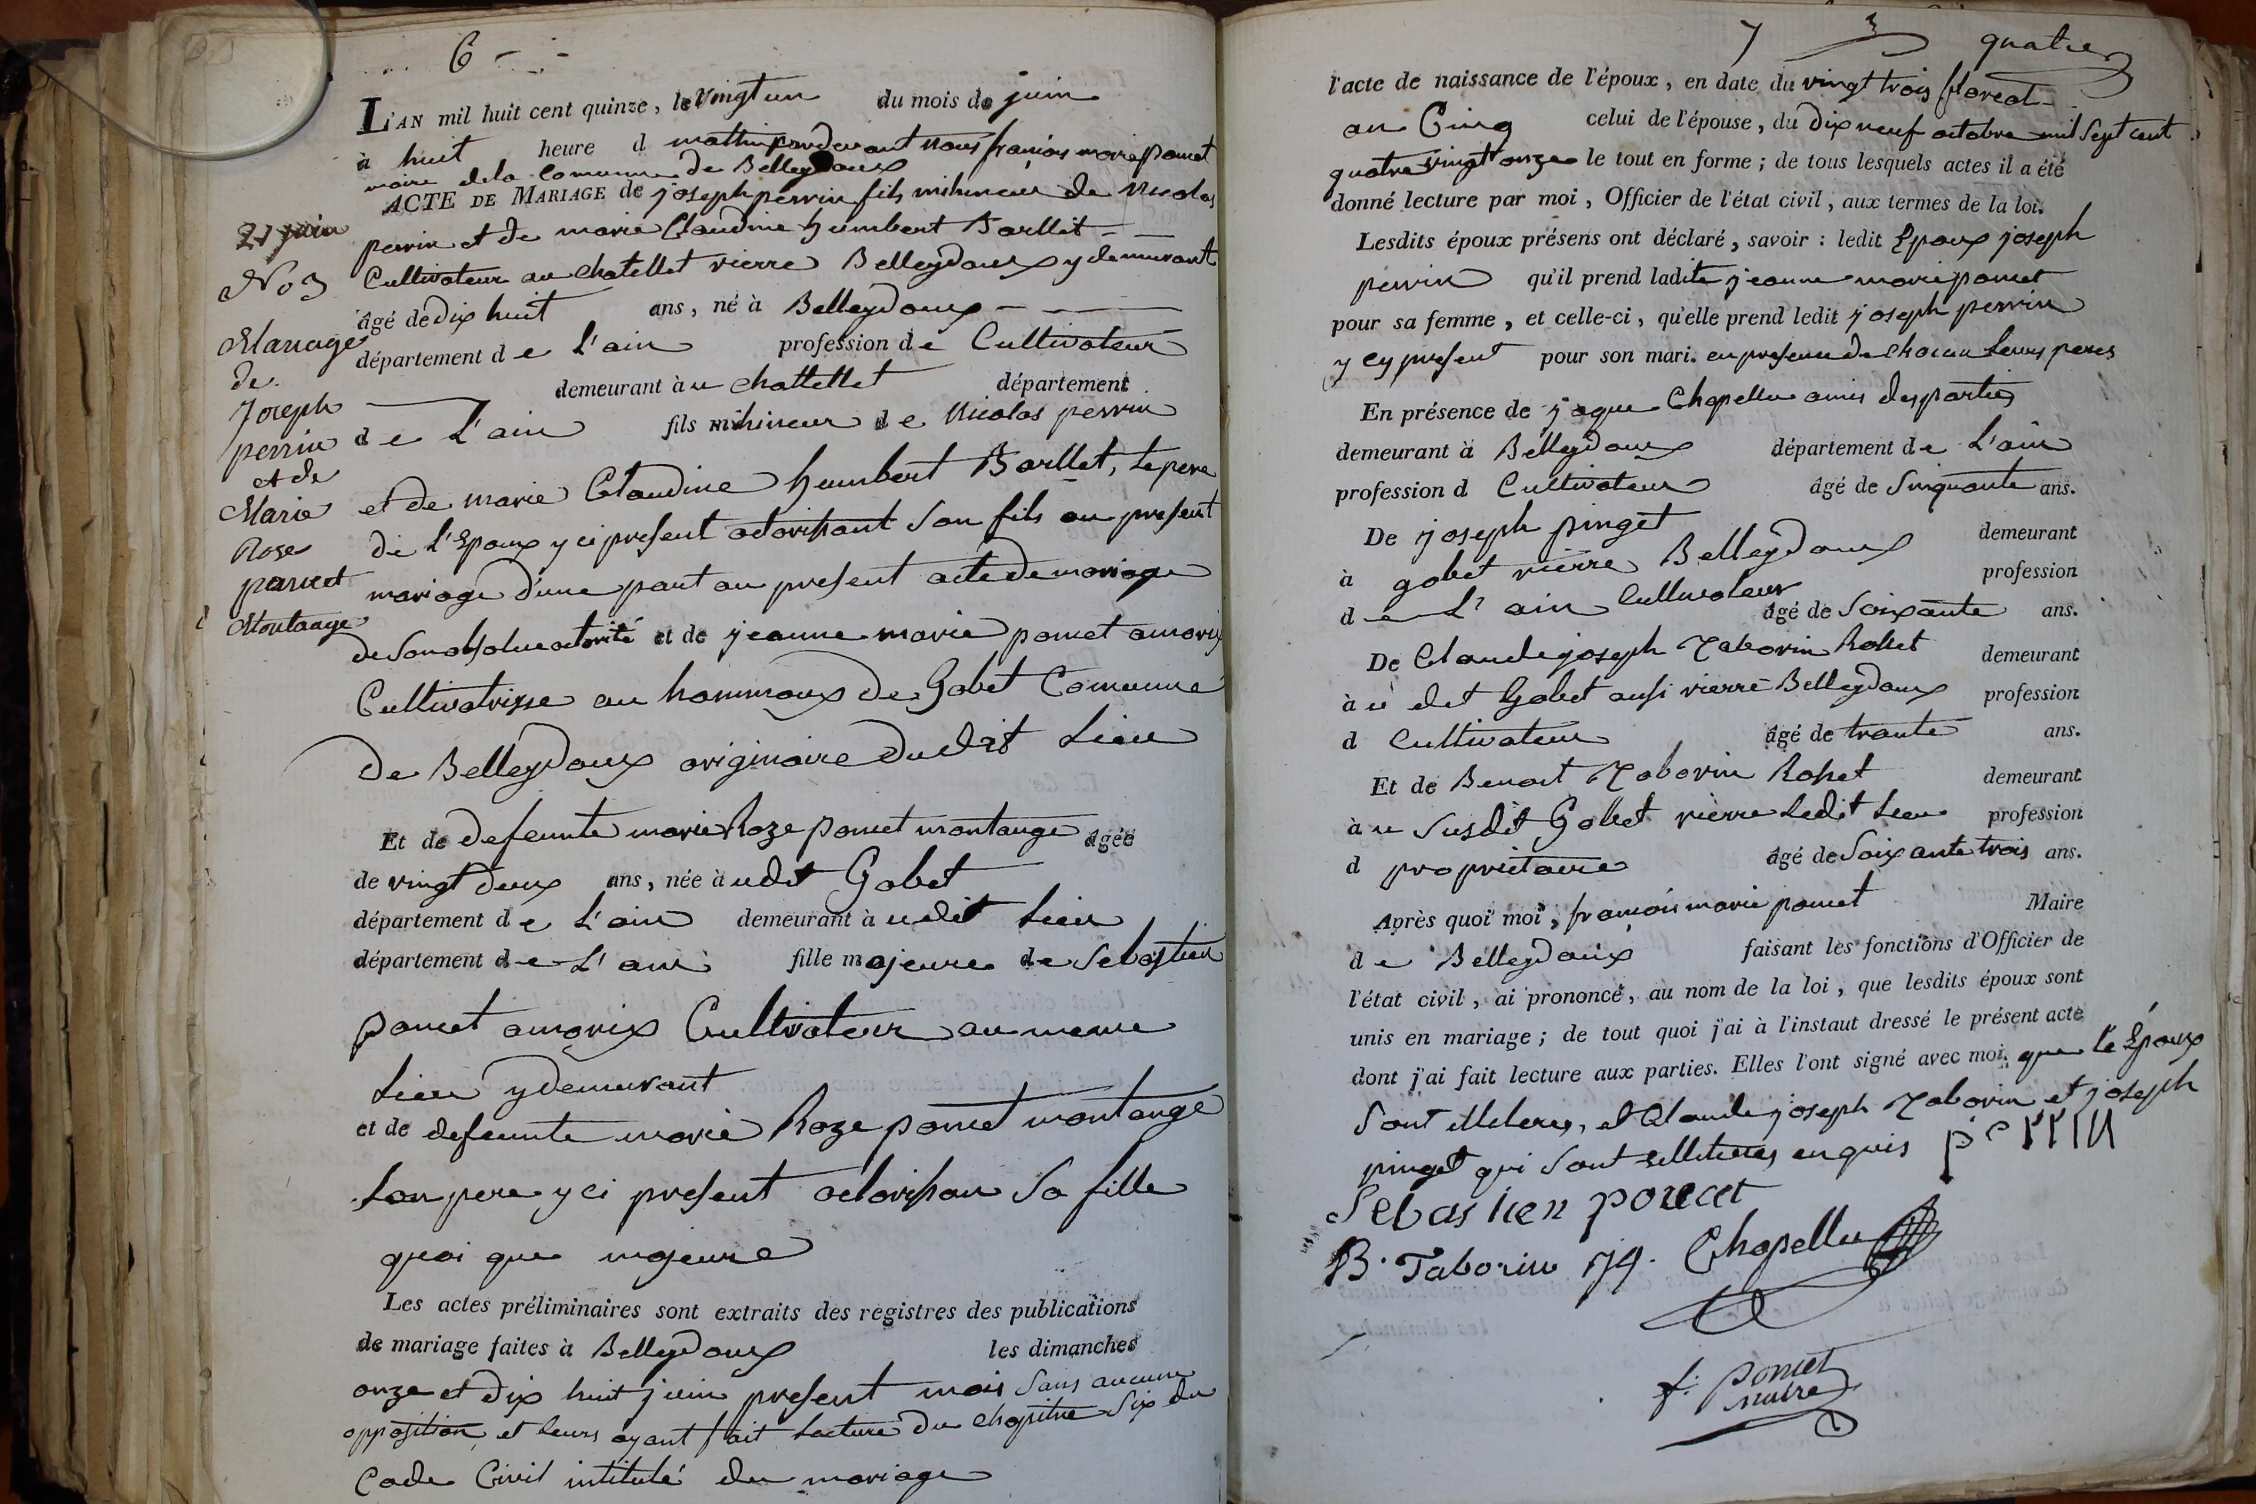 6
L'AN mil huit cent quinze, le vingt un du mois de juin
à huit heure d mattin pardevant nous françois marie poncet
maire dela Comune de Belleydoux
ACTE DE MARIAGE de joseph perrin fils mihineur de Nicolas
perrin et de marie Claudine humbert Barllet
Cultivateur au chatellet rierre Belleydoux y demeurant
âgé de dix huit ans, né à Belleydoux
département de L'ain profession de Cultivateur
demeurant àu chattellet département
de L'ain fils mihineur de Nicolas perrin
et de marie Claudine humbert Barllet, le pere
de l'Epoux y ci present actorisant son fils au present
mariage d'une part au present acte de mariage
de son absolue actorité et de jeanne marie poncet amorix
Cultivatrisse au hammaux de Gobet Comunne
de Belleydoux originaire dudit Lieu
Et de defeunte marie Roze poncet montange agée
de vingt deux ans, née à udit Gobet
département de L'ain demeurant à udit Lieu
département de L'ain fille majeure de Sebastien
poncet amorix Cultivateur au meme
Lieu y demeurant
et de defeunte marie Roze poncet montange
Son pere y ci present actorisan Sa fille
quoi que majeure
Les actes préliminaires sont extraits des registres des publications
de mariage faites à Belleydoux les dimanches
onze et dix huit juin present mois Sans aucune
opposition et leurs ayant fait Lecture du chapitre Six du
Code Civil intitulé du mariage
21 juin
No 3
Mariage
de
Joseph
perrin
et de
Marie
Rose
poncet
Montange
7 3 quatre
l'acte de naissance de l'époux, en date du vingt trois floreal
an Cinq celui de l'épouse, du dix neuf octobre mil Sept cent
quatre vingt onze le tout en forme; de tous lesquels actes il a été
donné lecture par moi, Officier de l'état civil, aux termes de la loi.
Lesdits époux présens ont déclaré, savoir: ledit Epoux joseph
perrin qu'il prend ladite jeanne marie poncet
pour sa femme, et celle-ci, qu'elle prend ledit joseph perrin
y cy present pour son mari. en presence de chacun Leurs peres
En présence de jaque Chapellu amis des parties
demeurant à Belleydoux département de L'ain
profession d Cultivateur âgé de Sinquante ans.
De joseph pinget demeurant
à gobet rierre Belleydoux profession
de L'ain Cultivateur âgé de Soixante ans.
De Claude joseph Taborin Rosset demeurant
à u dit Gobet ausi rierre Belleydoux profession
d Cultivateur âgé de trante ans.
Et de Benoit Taborin Rosset demeurant
à u Susdit Gobet rierre Ledit Lieu profession
d propriétaire âgé de Soixante trois ans.
Après quoi moi, françois marie poncet Maire
de Belleydoux faisant les fonctions d'Officier de
l'état civil, ai prononcé, au nom de la loi, que lesdits époux sont
unis en mariage; de tout quoi j'ai à l'instaut dressé le présent acte
dont j'ai fait lecture aux parties. Elles l'ont signé avec moi. que le Epoux
Sont illeteres, et Claude joseph Taborin et joseph
pinget qui Sont illeteres enquis
Sebastien poncet
B. Taborin J q. Chapellu
f. Poncet
maire